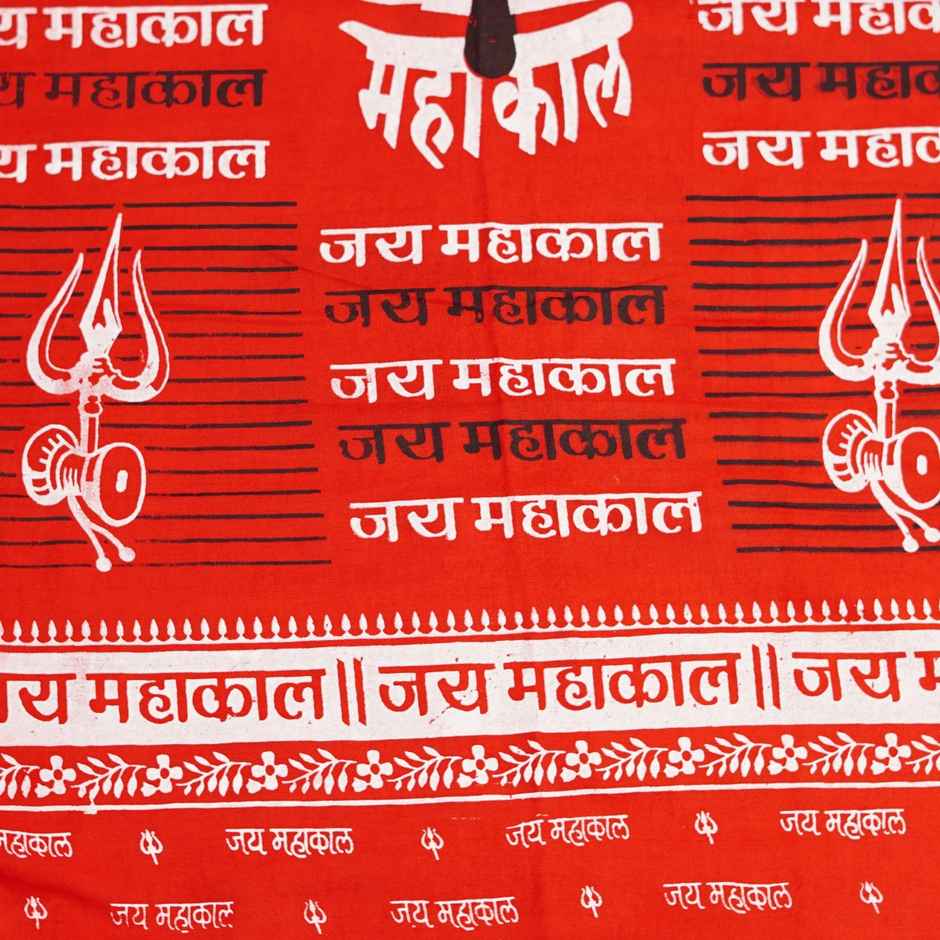 जय महाकाल
जय महाकाल
जय महाकाल
महाकाल
जय महाकाल
जय महाकाल
जय महाकाल
जय महाकाल
जय महाकाल
जय महाकाल
जय महाकाल
जय महाकाल
जय महाकाल || जय महाकाल || जय म
महाकाल जय महाकाल जय महाकाल जय महाकाल
जय महाकाल जय महाकाल जय महाकाल